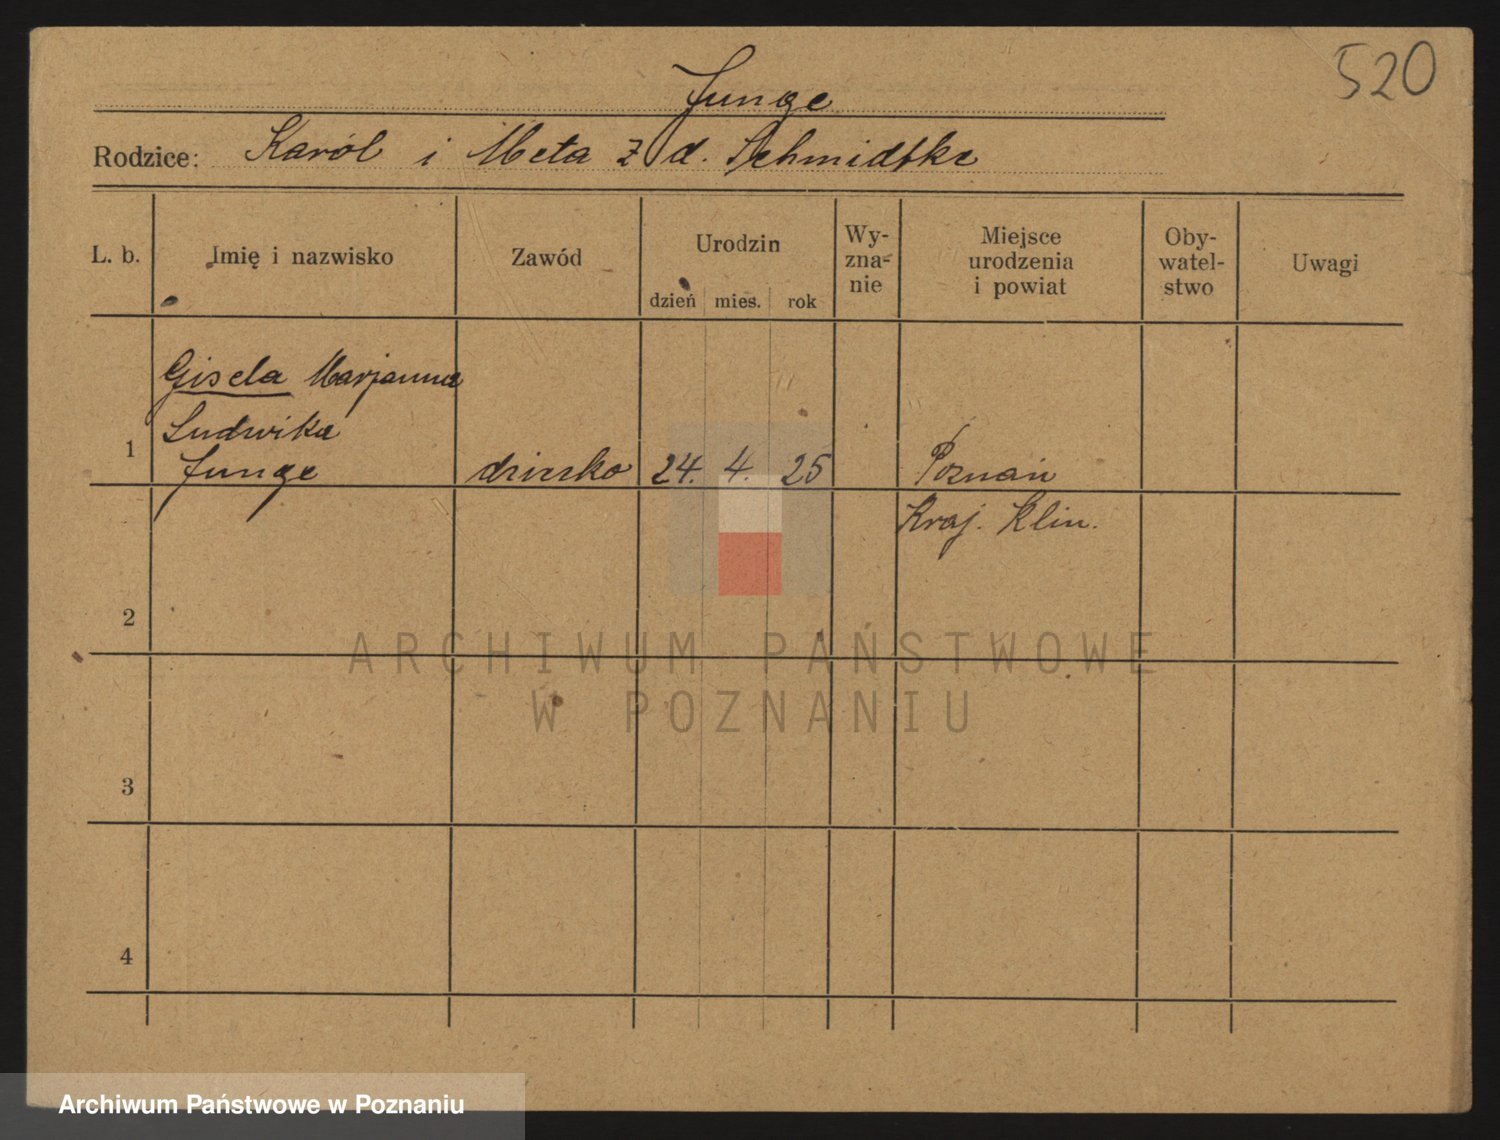 520
Junge
Rodzice: Karól i Meta z d. Schmidtke
L. b. Imię i nazwisko Zawód Urodzin dzień mies. rok Wy-zna-nie Miejsce urodzenia i powiat Oby-watel-stwo Uwagi
Gisela Marjanna
Ludwika
1 Junge dziecko 24. 4. 25 Poznań
Kraj. Klin.
2
ARCHIWUM PAŃSTWOWE
W POZNANIU
3
4
Archiwum Państwowe w Poznaniu